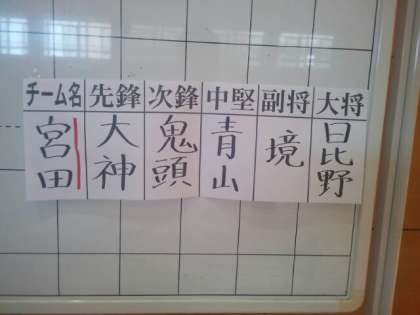 チーム名 先鋒 次鋒 中堅 副将 大将
宮田 大神 鬼頭 青山 境 日比野